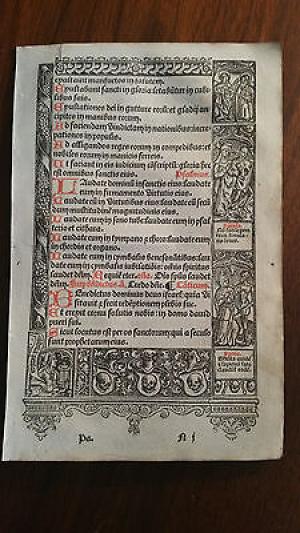 exultauit mansuetos in salutem.
Exultabunt sancti in gloria: letabūtur in cubi-
libus suis.
Exultationes dei in gutture eorum: et gladij an-
cipites in manibus eorum.
Ad faciendam vindictam in nationibus: incre-
pationes in populis.
Ad alligandos reges eorum in compedibus: et
nobiles eorum in manicis ferreis.
Ut faciant in eis iudicium cōscriptū: gloria hec
est omnibus sanctis eius. Psalmus.
Laudate dominū in sanctis eius: laudate
eum in firmamento virtutis eius.
Laudate eū in virtutibus eius: laudate eū secū
dum multitudinē magnitudinis eius.
Laudate eum in sono tube: laudate eum in psal-
terio et cithara.
Laudate eum in tympano et choro: laudate eum
in chordis et organo.
Laudate eum in cymbalis benesonātibus: lau
date eum in cymbalis iubilatiōis: oīs spiritus
laudet dn̄m.
Benedictus dominus deus israel: quia vi
sitauit et fecit redēptionem plebis sue.
Et erexit cornu salutis nobis: in domo dauid
pueri sui.
Sicut locutus est per os sanctorum: qui a seculo
sunt prophetarum eius.
Pa. N j